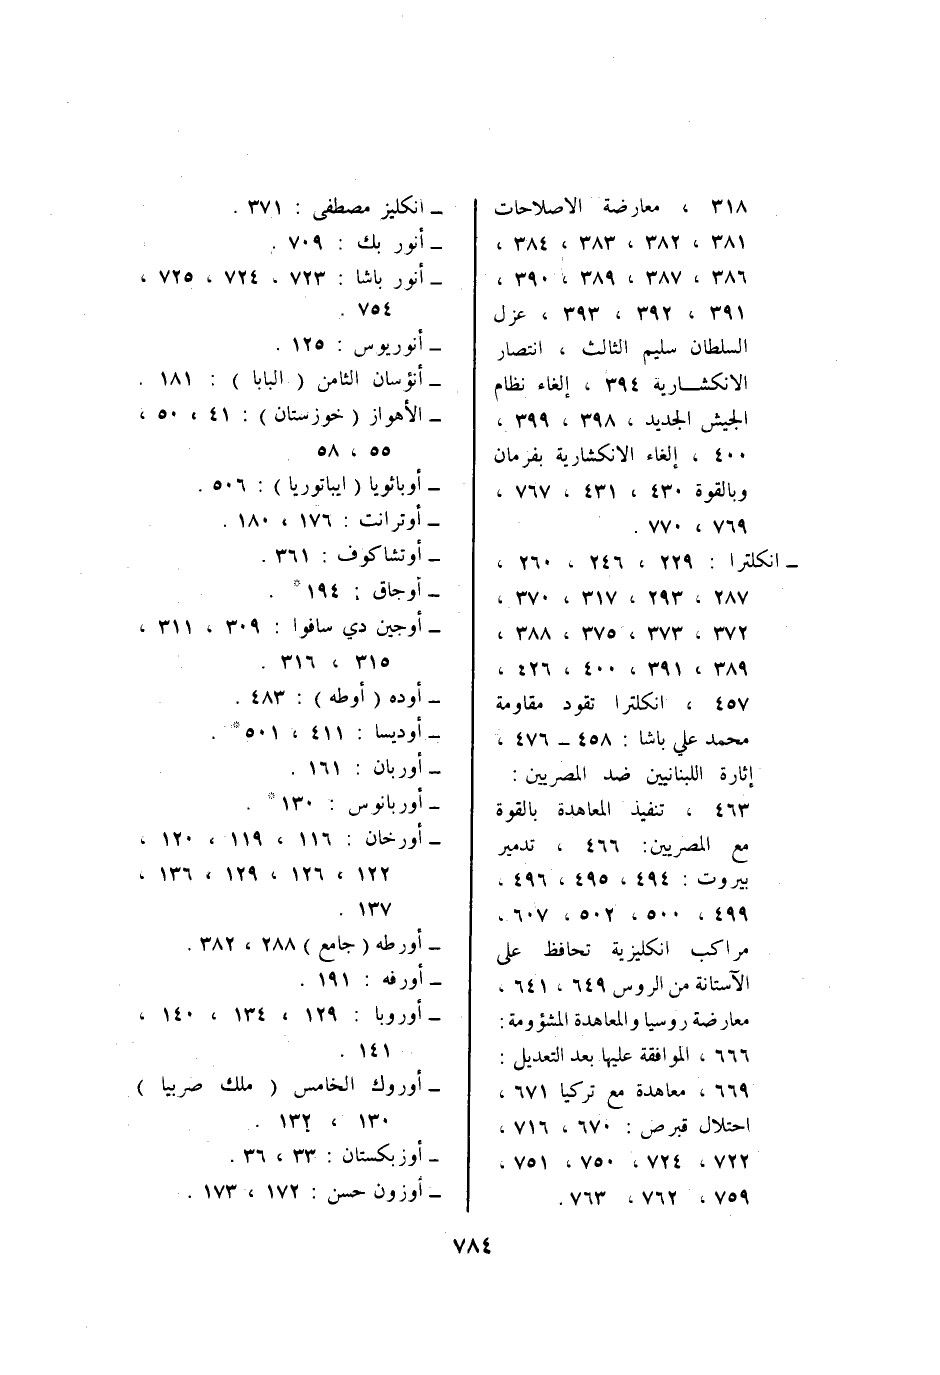 ٣١٨ ، معارضة الاصلاحات
٣٨١ ، ٣٨٢ ، ٣٨٣ ، ٣٨٤ ،
٣٨٦ ، ٣٨٧ ، ٣٨٩ ، ٣٩٠ ،
٣٩١ ، ٣٩٢ ، ٣٩٣ ، عزل
السلطان سليم الثالث ، انتصار
الانكشـــارية ٣٩٤ ، إلغاء نظام
الجيش الجديد ، ٣٩٨ ، ٣٩٩ ،
٤٠٠ ، إلغاء الانكشارية بفرمان
وبالقوة ٤٣٠ ، ٤٣١ ، ٧٦٧ ،
٧٦٩ ، ٧٧٠ .
ـ انكلترا : ٢٢٩ ، ٢٤٦ ، ٢٦٠ ،
٢٨٧ ، ٢٩٣ ، ٣١٧ ، ٣٧٠ ،
٣٧٢ ، ٣٧٣ ، ٣٧٥ ، ٣٨٨ ،
٣٨٩ ، ٣٩١ ، ٤٠٠ ، ٤٢٦ ،
٤٥٧ ، انكلترا تقود مقاومة
محمد علي باشا : ٤٥٨ ـ ٤٧٦ ،
إثارة اللبنانيين ضد المصريين :
٤٦٣ ، تنفيذ المعاهدة بالقوة
مع المصريين: ٤٦٦ ، تدمير
بيروت : ٤٩٤ ، ٤٩٥ ، ٤٩٦ ،
٤٩٩ ، ٥٠٠ ، ٥٠٢ ، ٦٠٧ ،
مراكب انكليزية تحافظ على
الآستانة من الروس ٦٤٩ ، ٦٤١ ،
معارضة روسيا والمعاهدة المشؤومة :
٦٦٦ ، الموافقة عليها بعد التعديل :
٦٦٩ ، معاهدة مع تركيا ٦٧١ ،
احتلال قبرص : ٦٧٠ ، ٧١٦ ،
٧٢٢ ، ٧٢٤ ، ٧٥٠ ، ٧٥١ ،
٧٥٩ ، ٧٦٢ ، ٧٦٣ .
ـ انكليز مصطفى : ٣٧١ .
ـ أنور بك : ٧٠٩ .
ـ أنور باشا : ٧٢٣ ، ٧٢٤ ، ٧٢٥ ،
٧٥٤ .
ـ أنوريوس : ١٢٥ .
ـ أنؤسان الثامن ( البابا ) : ١٨١ .
ـ الأهواز ( خوزستان ) : ٤١ ، ٥٠ ،
٥٥ ، ٥٨
ـ أوباثويا ( ايباتوريا ) : ٥٠٦ .
ـ أوترانت : ١٧٦ ، ١٨٠ .
ـ أوتشاكوف : ٣٦١ .
ـ أوجاق : ١٩٤* .
ـ أوجين دي سافوا : ٣٠٩ ، ٣١١ ،
٣١٥ ، ٣١٦ .
ـ أوده ( أوطه ) : ٤٨٣ .
ـ أوديسا : ٤١١ ، ٥٠١* .
ـ أوربان : ١٦١ .
ـ أوربانوس : ١٣٠* .
ـ أورخان : ١١٦ ، ١١٩ ، ١٢٠ ،
١٢٢ ، ١٢٦ ، ١٢٩ ، ١٣٦ ،
١٣٧ .
ـ أورطه ( جامع ) ٢٨٨ ، ٣٨٢ .
ـ أورفه : ١٩١ .
ـ أوروبا : ١٢٩ ، ١٣٤ ، ١٤٠ ،
١٤١ .
ـ أوروك الخامس ( ملك صربيا )
١٣٠ ، ١٣٢ .
ـ أوزبكستان : ٣٣ ، ٣٦ .
ـ أوزون حسن : ١٧٢ ، ١٧٣ .
٧٨٤